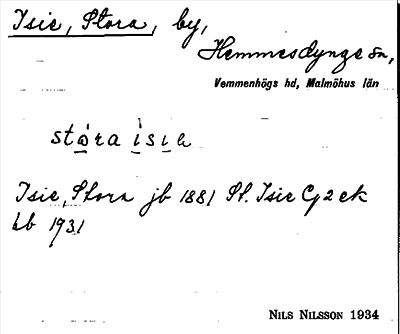 Isie, Stora, by,
Hemmesdynge sn,
Vemmenhögs hd, Malmöhus län
stora isie
Isie, Stora jb 1881 St. Isie G 2 ek
hb 1931
NILS NILSSON 1934